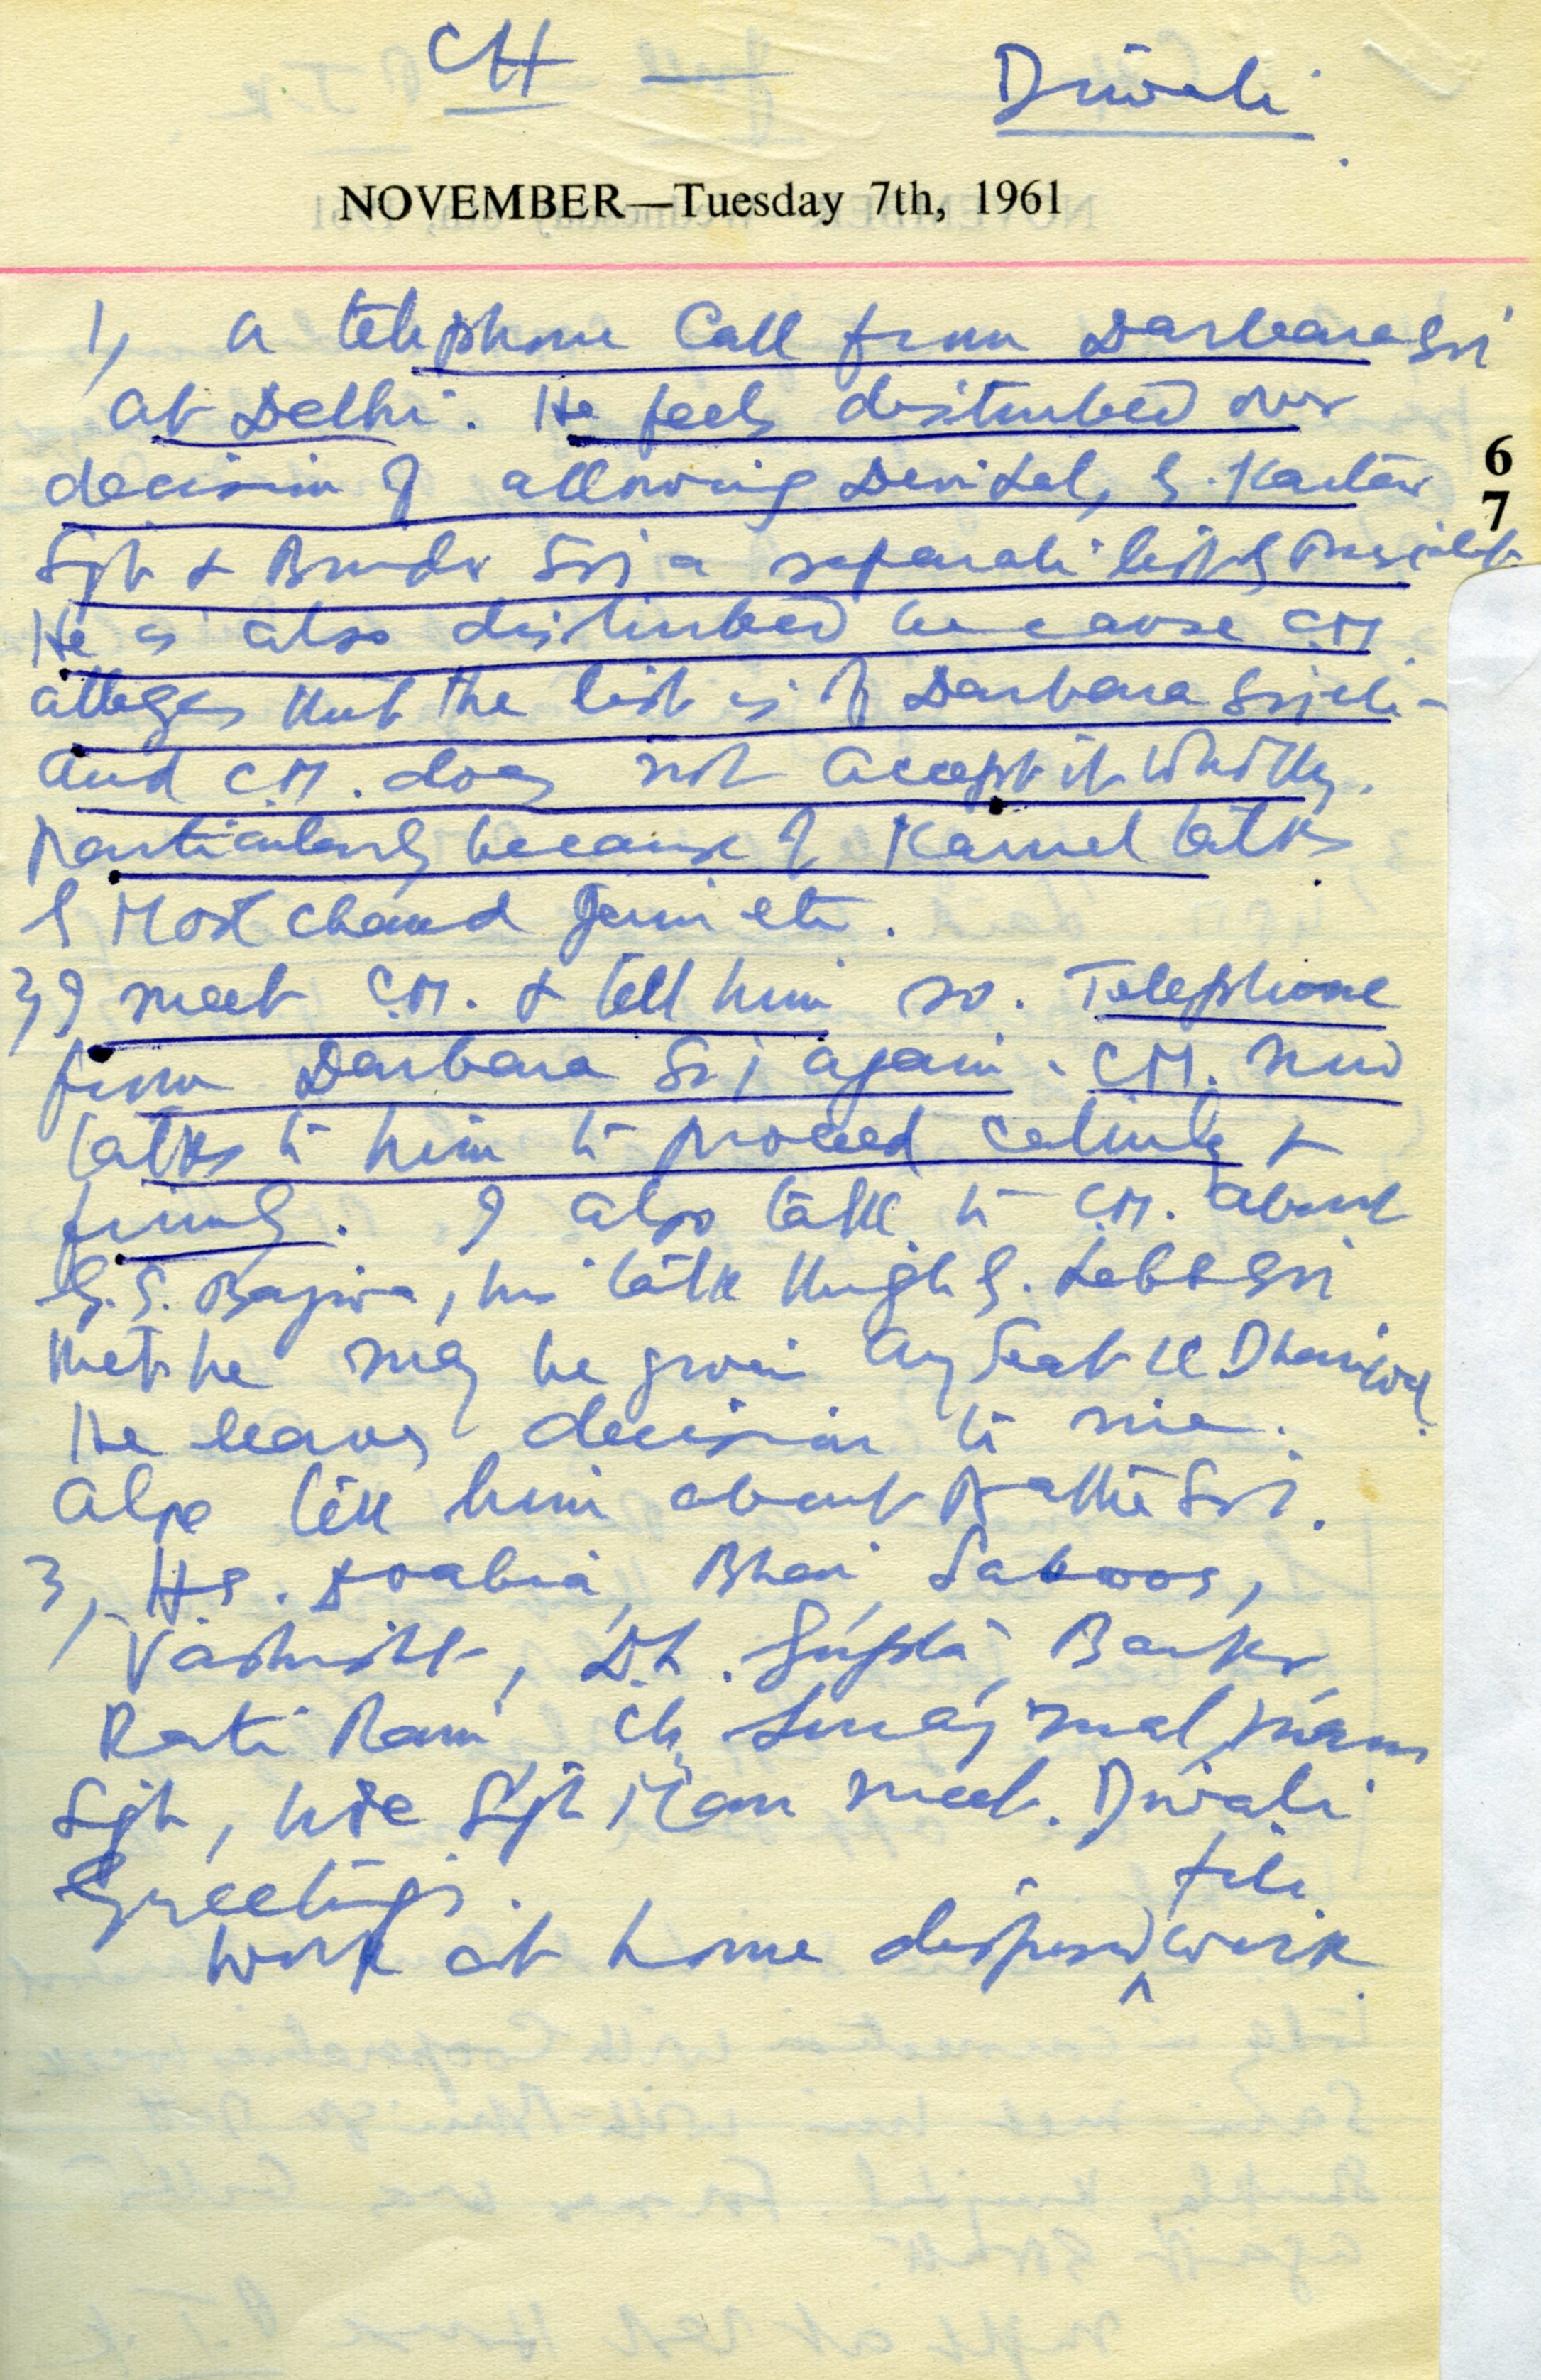 CH — Diwali
NOVEMBER—Tuesday 7th, 1961
1, a telephone Call from Darbara Sri
at Delhi. He feels disturbed over
decision of allowing Devi Lal, S. Kartar
6
7
Sgh &
He is also disturbed because C.M.
alleges that the list is of Darbara
and C.M. does not accept it wholly.
Particularly because of Karnal talks
Chand Jain etc.
I meet C.M. & tell him so. Telephone
from Darbara again. C.M. now
talks to him to proceed calmly &
firmly. I also talk to C.M. about
G.S. Bajwa, his talk through S.
that he may be given any seat
He leaves decision to me.
Also tell him about
3, Bhai
Vashisht, D.L. Gupta,
Rati Ram, Ch. Suraj mal,
Sgh, Sgh Mann meet. Diwali
Greetings.
Work at home disposed file work.